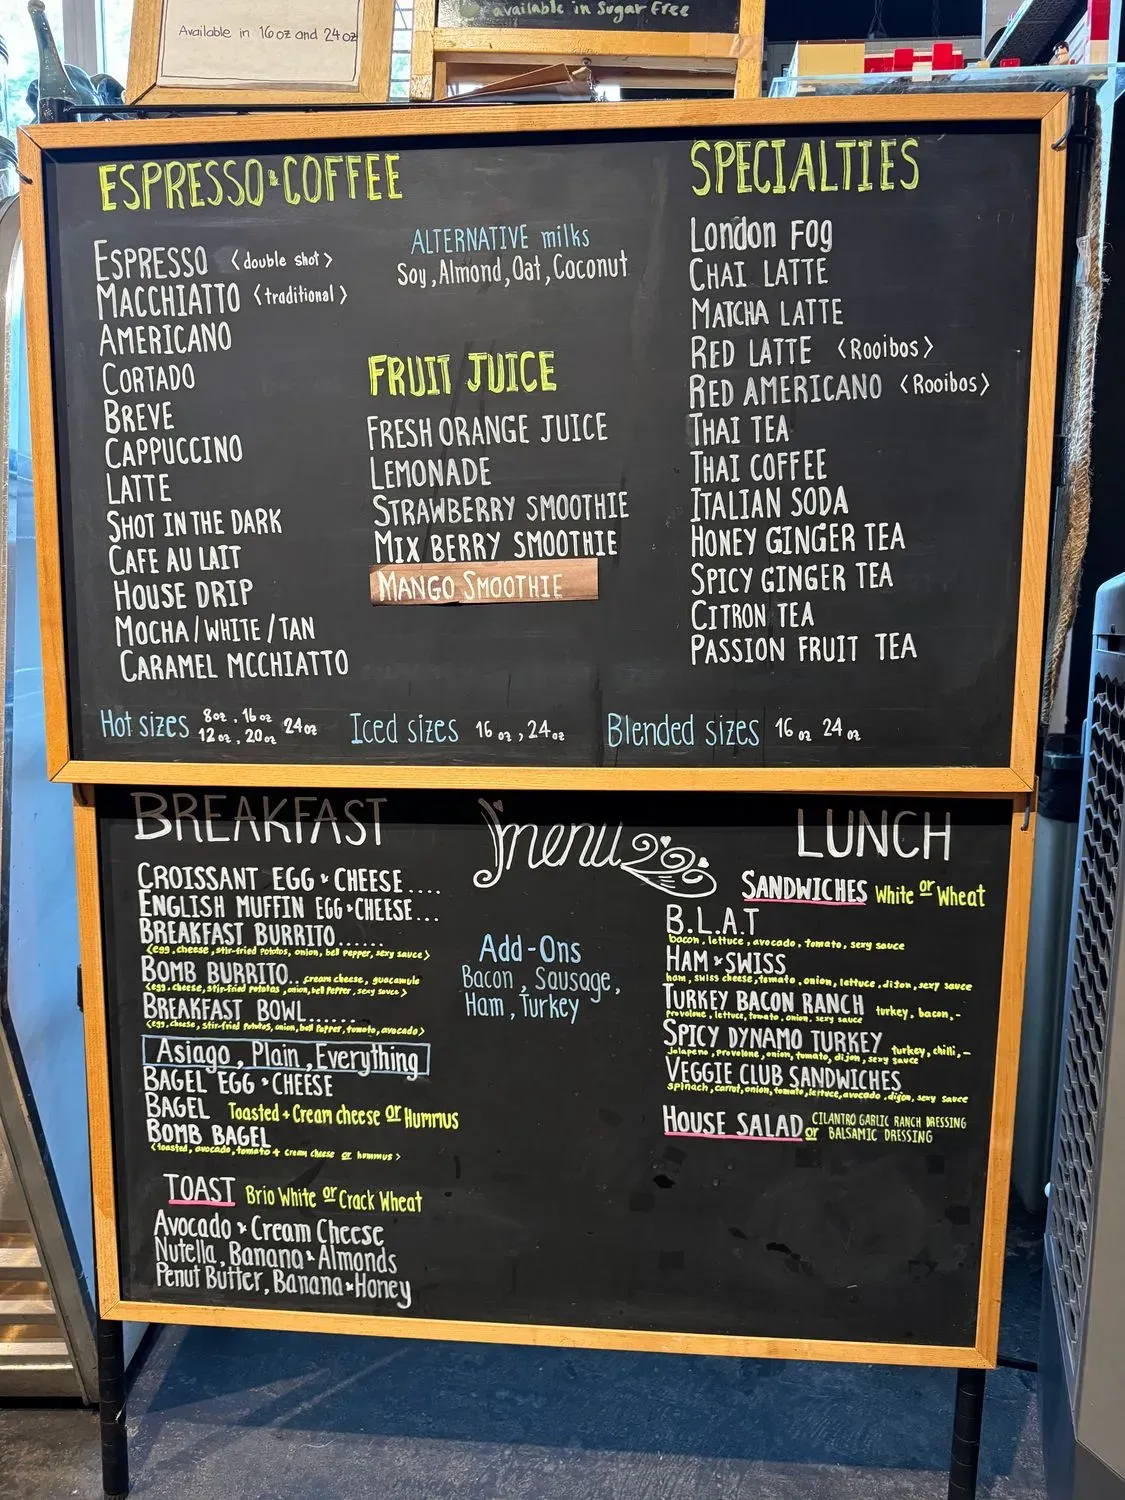 Available in 16oz and 24oz
available in Sugar Free
ESPRESSO & COFFEE
ESPRESSO <double shot>
MACCHIATTO <traditional>
AMERICANO
CORTADO
BREVE
CAPPUCCINO
LATTE
SHOT IN THE DARK
CAFE AU LAIT
HOUSE DRIP
MOCHA/WHITE/TAN
CARAMEL MCCHIATTO
ALTERNATIVE milks
Soy, Almond, Oat, Coconut
FRUIT JUICE
FRESH ORANGE JUICE
LEMONADE
STRAWBERRY SMOOTHIE
MIX BERRY SMOOTHIE
MANGO SMOOTHIE
SPECIALTIES
London FOG
CHAI LATTE
MATCHA LATTE
RED LATTE <Rooibos>
RED AMERICANO <Rooibos>
THAI TEA
THAI COFFEE
ITALIAN SODA
HONEY GINGER TEA
SPICY GINGER TEA
CITRON TEA
PASSION FRUIT TEA
Hot sizes 8oz, 16oz 24oz
12oz, 20oz
Iced sizes 16 oz, 24oz
Blended sizes 16 oz 24 oz
BREAKFAST
CROISSANT EGG & CHEESE....
ENGLISH MUFFIN EGG & CHEESE...
BREAKFAST BURRITO......
<egg, cheese, stir-fried potatos, onion, bell pepper, sexy sauce>
BOMB BURRITO.. cream cheese, guacamule
<egg, cheese, stir-fried potatas, onion, bell pepper, sexy sauce>
BREAKFAST BOWL......
<egg, cheese, stir-fried potatos, onion, bell Papper, tomato, avocado>
Asiago, Plain, Everything
BAGEL EGG & CHEESE
BAGEL Toasted + Cream cheese or Hummus
BOMB BAGEL
<toasted, avocado, tomato + cream cheese or hummus>
TOAST Brio White or Crack Wheat
Avocado & Cream Cheese
Nutella, Banana & Almonds
Penut Butter, Banana & Honey
menu
Add-Ons
Bacon, Sausage,
Ham, Turkey
LUNCH
SANDWICHES White or Wheat
B.L.A.T
bacon, lettuce, avocado, tomato, sexy sauce
HAM & SWISS
ham, swiss cheese, tomato, onion, lettuce, dijon, sexy sauce
TURKEY BACON RANCH turkey, bacon,-
provolone, lettuce, tomato, onion, sexy sauce
SPICY DYNAMO TURKEY turkey, chilli,-
jalapeno, provolone, onion, tomato, dijon, sexy sauce
VEGGIE CLUB SANDWICHES
spinach, carrot, onion, tomato, lettuce, avocado, dijon, sexy sauce
HOUSE SALAD CILANTRO GARLIC RANCH DRESSING
or BALSAMIC DRESSING